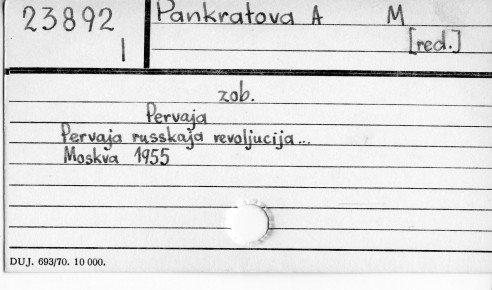 23892
I
Pankratova A M
[red.]
zob.
Pervaja
Pervaja russkaja revoljucija...
Moskva 1955
DUJ. 693/70. 10 000.